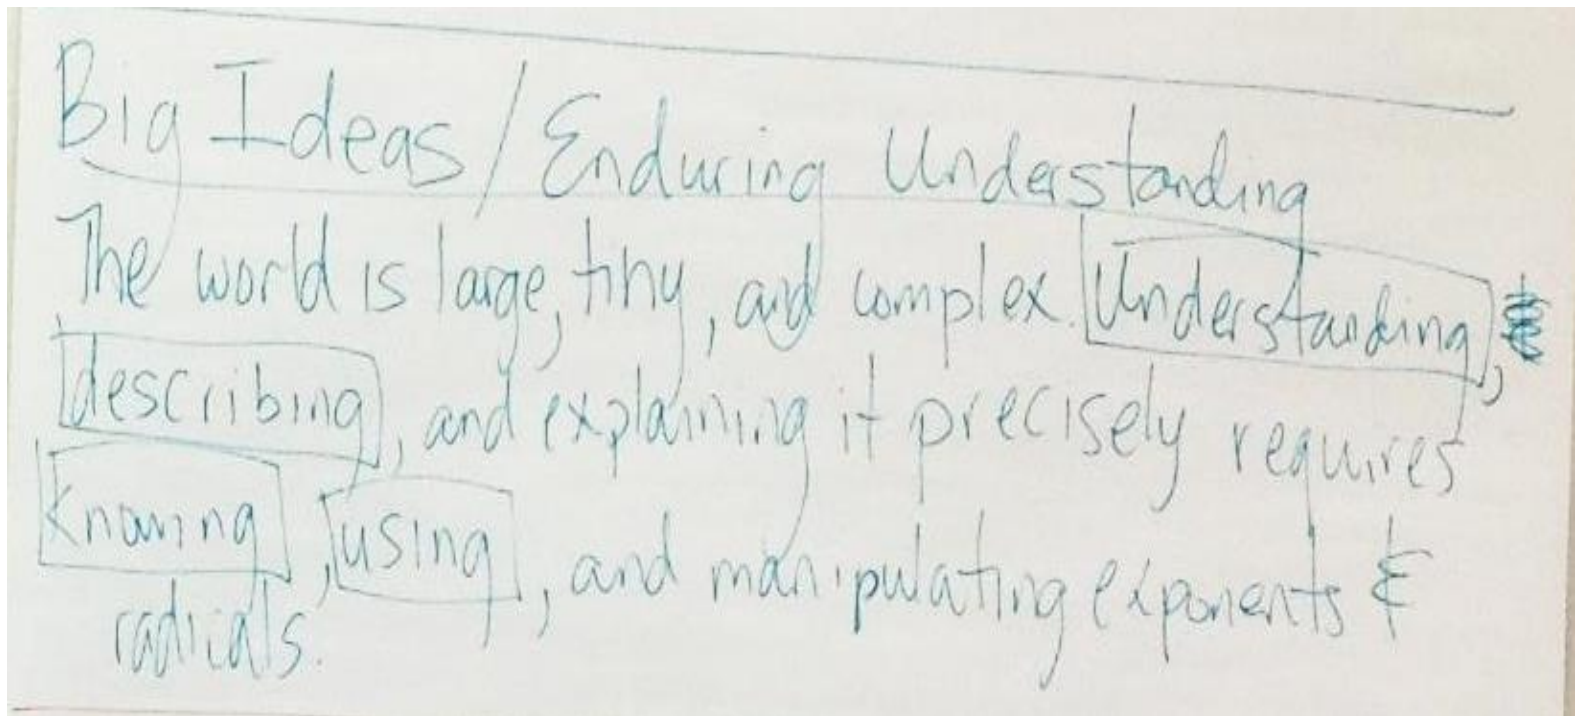 Big Ideas / Enduring Understanding
The world is large, tiny, and complex. Understanding,
describing, and explaining it precisely requires
knowing, using, and manipulating exponents &
radicals.